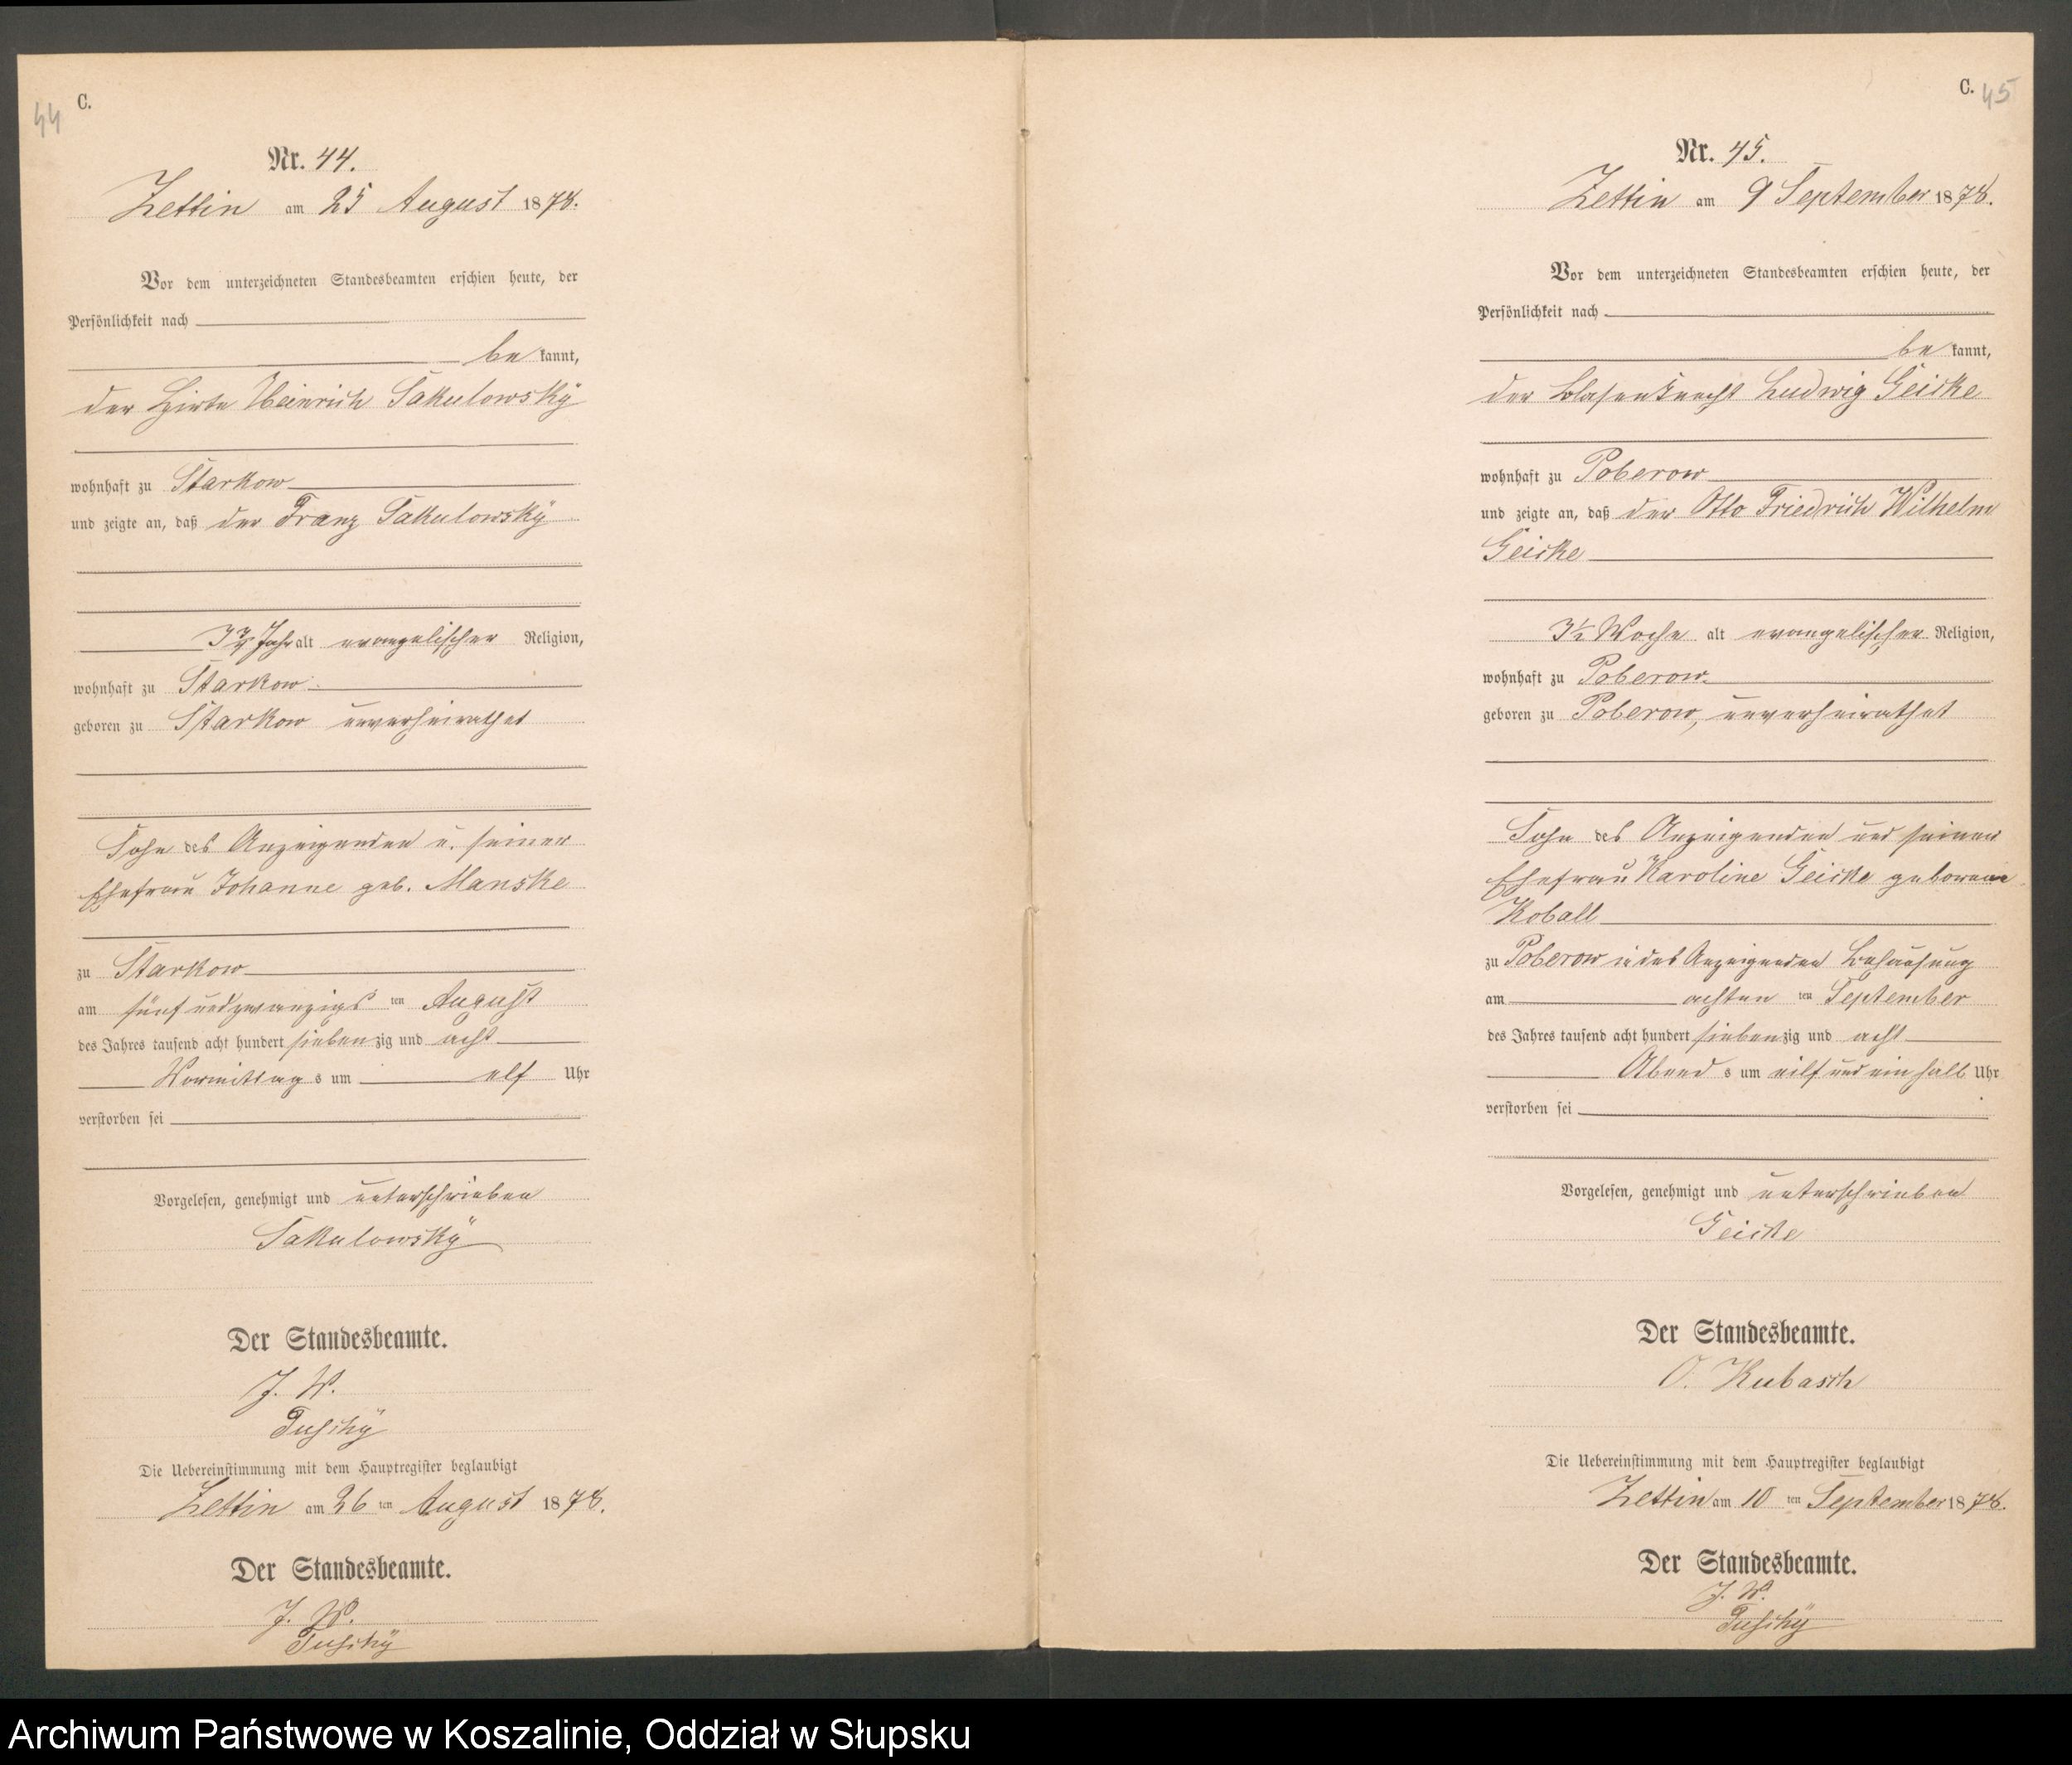 44
C.
Nr. 44.
Zettin am 25 August 1878.
Vor dem unterzeichneten Standesbeamten erschien heute, der
Persönlichkeit nach
be kannt,
der Hirte Heinrich Sakulowsky
wohnhaft zu Starkow
und zeigte an, daß der Franz Sakulowsky
Jahr alt evangelischer Religion,
wohnhaft zu Starkow
geboren zu Starkow unverheirathet
Sohn des Anzeigenden u. seiner
Ehefrau Johanne geb. Manske
zu Starkow
am fünf und zwanzigs ten August
des Jahres tausend acht hundert siebenzig und acht
Vormittag s um elf Uhr
verstorben sei
Vorgelesen, genehmigt und unterschrieben
Sakulowsky
Der Standesbeamte.
J. V.
Die Uebereinstimmung mit dem Hauptregister beglaubigt
Zettin am 26 ten August 1878.
Der Standesbeamte.
J. V.
C. 45
Nr. 45.
Zettin am 9 September 1878.
Vor dem unterzeichneten Standesbeamten erschien heute, der
Persönlichkeit nach
be kannt,
der Blasenknecht Ludwig Geiske
wohnhaft zu Poberow
und zeigte an, daß der Otto Friedrich Wilhelm
Geiske
3½ Woche alt evangelischer Religion,
wohnhaft zu Poberow
geboren zu Poberow, unverheirathet
Sohn des Anzeigenden und seiner
Ehefrau Karoline Geiske geborene
Koball
zu Poberow in des Anzeigenden Behausung
am achten ten September
des Jahres tausend acht hundert siebenzig und acht
Abend s um eilf und ein halb Uhr
verstorben sei
Vorgelesen, genehmigt und unterschrieben
Geiske
Der Standesbeamte.
O. Kubasch
Die Uebereinstimmung mit dem Hauptregister beglaubigt
Zettin am 10 ten September 1878.
Der Standesbeamte.
J. V.
Archiwum Państwowe w Koszalinie, Oddział w Słupsku